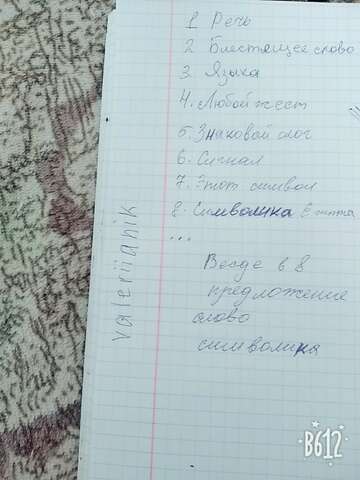 1. Речь
2. Блестящее слово
3. Языка
4. Любой жест
5. Знаковой слог
6. Сигнал
7. Этот символ
8. Символика Египта
...
Везде в 8
предложение
слово
символика
valeriianik
B612